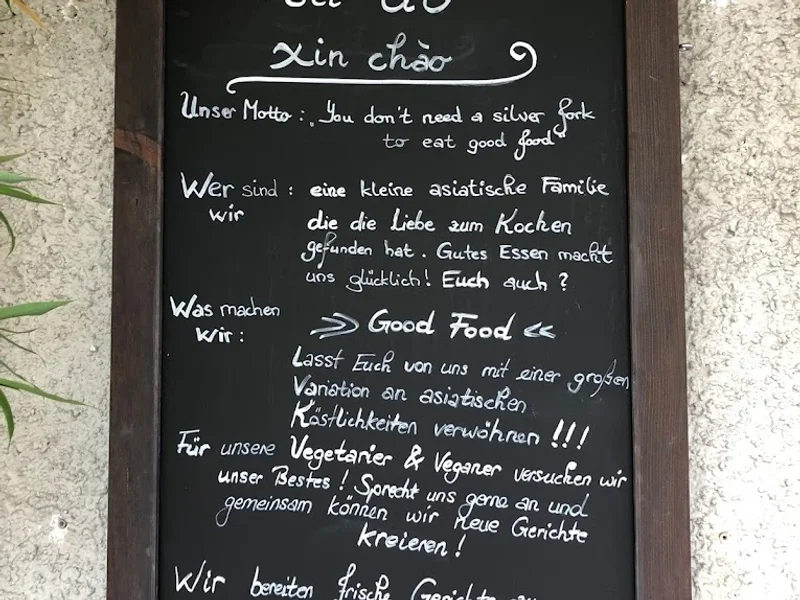 xin chào
Unser Motto: „You don't need a silver fork
to eat good food"
Wer sind: eine kleine asiatische Familie
wir
die die Liebe zum Kochen
gefunden hat. Gutes Essen macht
uns glücklich! Euch auch?
Was machen
wir: >> Good Food <<
Lasst Euch von uns mit einer großen
Variation an asiatischen
Köstlichkeiten verwöhnen !!!
Für unsere Vegetarier & Veganer versuchen wir
unser Bestes! Sprecht uns gerne an und
gemeinsam können wir neue Gerichte
kreieren!
Wir bereiten frische Gerichte